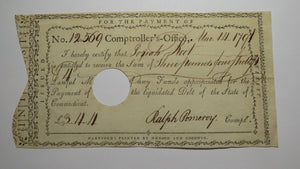 FOR THE PAYMENT OF
No. 12,569 Comptroller's-Office, Mar. 14. 1791
I hereby certify that Josiah
Is entitled to receive the Sum of Three pounds four
out of the Funds appropriated for the
Payment of the liquidated Debt of the State of
Connecticut.
£3.4.4 Ralph Pomeroy Compt.
HARTFORD: PRINTED BY HUDSON AND GOODWIN.